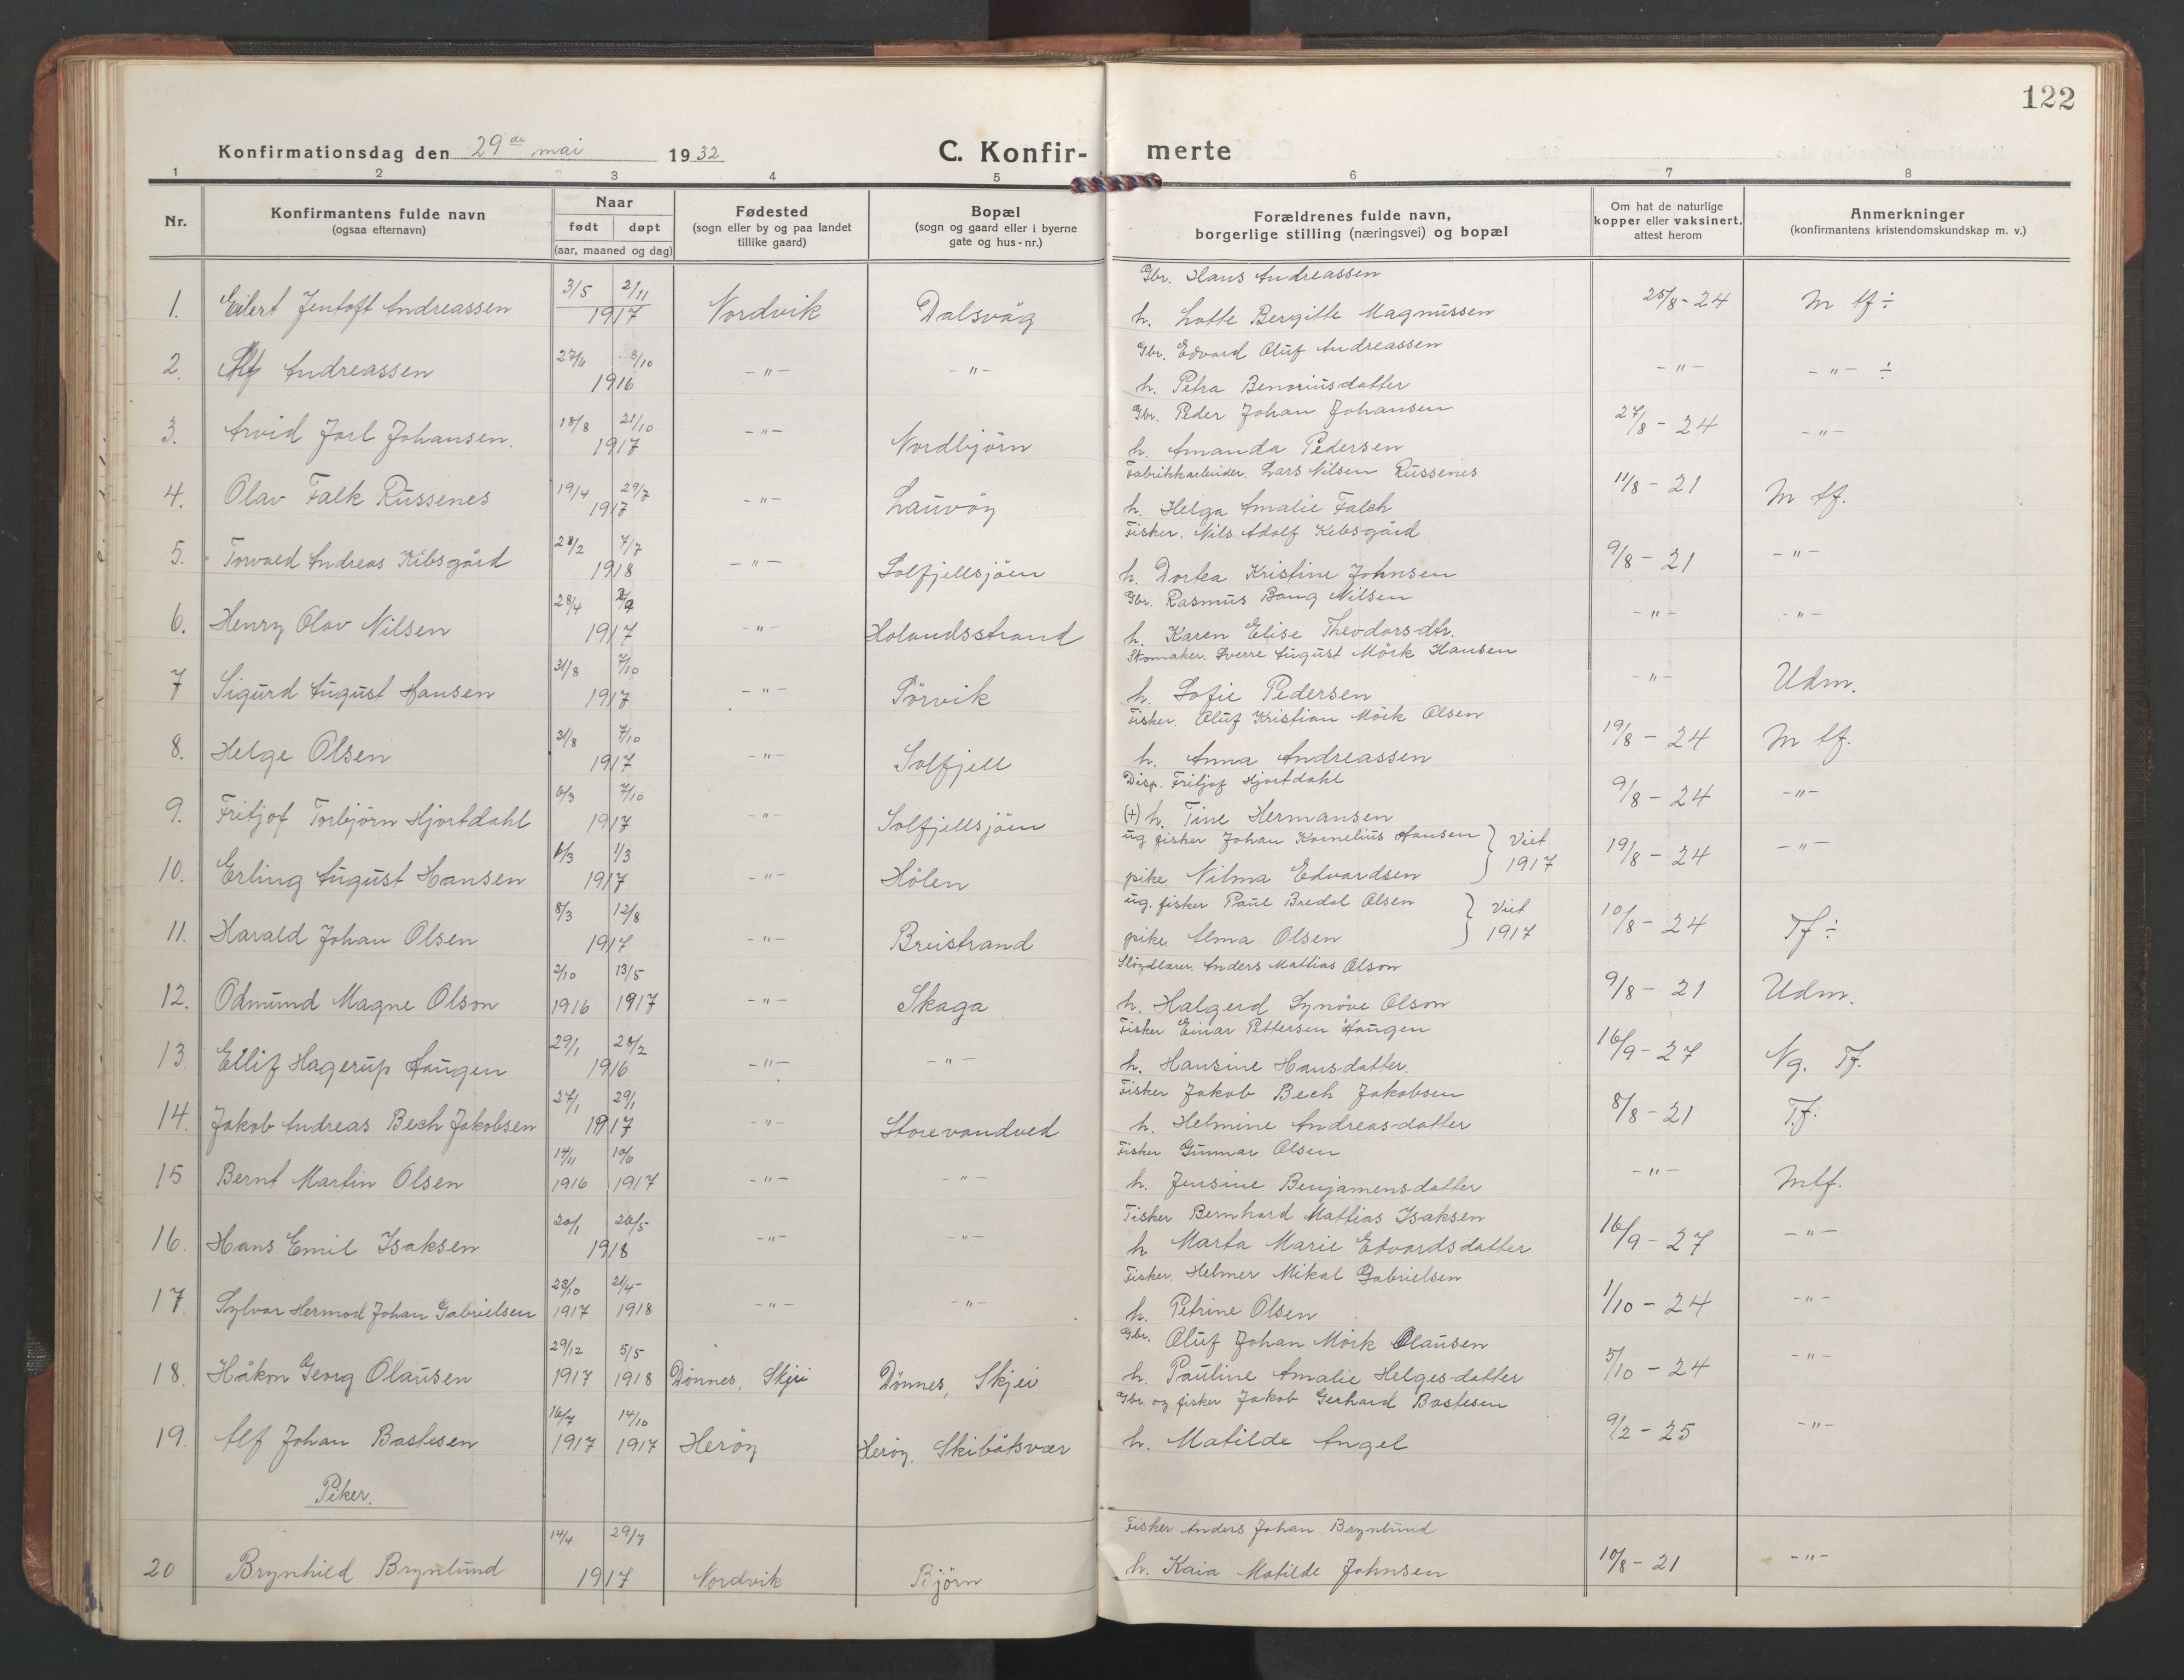 122
Konfirmationsdag den 29de mai 1932 C. Konfir- merte
1 2 3 4 5 6 7 8
Nr. Konfirmantens fulde navn (ogsaa efternavn) Naar født døpt (aar, maaned og dag) Fødested (sogn eller by og paa landet tillike gaard) Bopæl (sogn og gaard eller i byerne gate og hus-nr.) Forældrenes fulde navn, borgerlige stilling (næringsvei) og bopæl Om hat de naturlige kopper eller vaksinert, attest herom Anmerkninger (konfirmantens kristendomskundskap m. v.)
Gbr. Hans Andreassen
1. Eilert Jentoft Andreassen 3/5 2/11 1917 Nordvik Dalsvåg h. Lotte Bergitte Magnussen 25/8-24 M tf ÷
Gbr. Edvard Oluf Andreassen
2. Alf Andreassen 27/6 8/10 1916 -"- -"- h. Petra Benoriusdatter -"- -"- ÷
Gbr. Peder Johan Johansen
3. Arvid Jarl Johansen. 18/8 21/10 1917 -"- Nordbjörn h. Amanda Pedersen 27/8-24 -"-
Fabrikkarbeider. Lars Nilsen Russenes
4. Olav Falk Russenes 19/4 29/7 1917 -"- Lauvöy h. Helga Amalie Falch 11/8-21 M tf.
Fisker. Nils Adolf Kibsgård
5. Torvald Andreas Kibsgård 28/2 7/7 1918 -"- Solfjellsjöen h. Dortea Kristine Johnsen 9/8-21 -"-
Gbr. Rasmus Bang Nilsen
6. Henry Olav Nilsen 28/4 1917 -"- Holandsstrand h. Karen Elise Theodorsdtr. -"- -"-
Skomaker. Sverre August Mörk Hansen
7 Sigurd August Hansen 31/8 7/10 1917 -"- Sörvik h. Sofie Pedersen -"- Udm.
Fisker. Oluf Kristian Mörk Olsen
8. Helge Olsen 31/8 7/10 1917 -"- Solfjell h. Anna Andreassen 19/8-24 M tf.
Disp. Fritjof Hjortdahl
9. Fritjof Torbjörn Hjortdahl 6/3 7/10 1917 -"- Solfjellsjöen (+) h. Tine Hermansen 9/8-24 -"-
ug fisker Johan Kornelius Hansen } Viet
10. Erling August Hansen 6/3 1/3 1917 -"- Hölen pike. Nilma Edvardsen 1917 19/8-24 -"-
ug. fisker Paul Bredal Olsen } Viet
11. Harald Johan Olsen 8/3 12/8 1917 -"- Breistrand pike. Alma Olsen 1917 10/8-24 Tf ÷
Slöydlærer. Anders Mattias Olson
12. Odmund Magne Olson 2/10 1916 13/5 1917 -"- Skaga h. Halgerd Synöve Olson 9/8-21 Udm.
Fisker Einar Pettersen Haugen
13. Eilif Hagerup Haugen 29/1 28/2 1916 -"- -"- h. Hansine Hansdatter. 16/9-27 Ng. Tf.
Fisker Jakob Bech Jakobsen
14. Jakob Andreas Bech Jakobsen 27/1 29/1 1917 -"- Storevandved h. Helmine Andreasdatter 8/8-21 Tf.
Fisker Gunnar Olsen
15 Bernt Martin Olsen 14/11 1916 10/6 1917 -"- -"- h. Jensine Benjamensdatter -"- Mtf.
Fisker Bernhard Mattias Isaksen
16. Hans Emil Isaksen 20/1 26/5 1918 -"- -"- h Marta Marie Edvardsdatter 16/9-27 -"-
Fisker. Helmer Mikal Gabrielsen
17. Sylvar Hermod Johan Gabrielsen 28/10 1917 21/4 1918 -"- -"- h. Petrine Olsen 1/10-24 -"-
Gbr. Oluf Johan Mörk Olausen
18. Håkon Georg Olausen 29/12 1917 5/5 1918 Dönnes, Skjei Dönnes, Skjei h. Pauline Amalie Helgesdatter 5/10-24 -"-
Gbr. og fisker Jakob Gerhard Bastesen
19. Alf Johan Bastesen 16/7 1917 14/10 1917 Heröy Heröy, Skibåtsvær h. Matilde Angel 9/2-25 -"-
Piker.
Fisker Anders Johan Brynlund
20 Brynhild Brynlund 14/4 29/7 1917 Nordvik Björn h. Kaia Matilde Johnsen 10/8-21 -"-